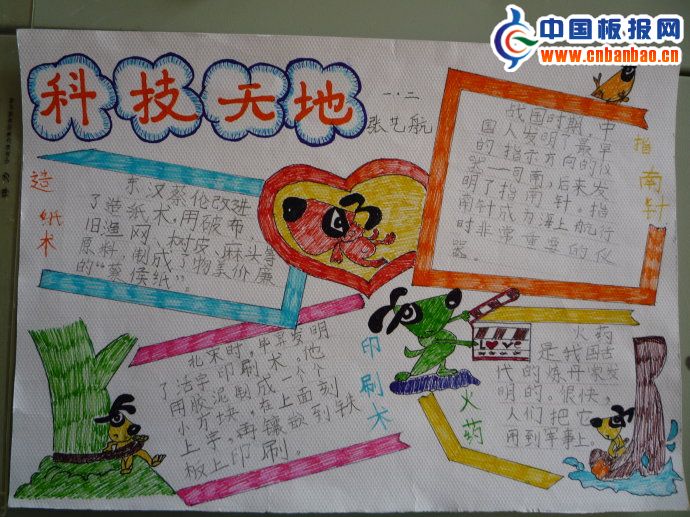 中国板报网
www.cnbanbao.cn
科技天地
一·二
张艺航
造纸术
东汉蔡伦改进
了造纸术,用破布、
旧渔网、树皮、麻头等
原料,制成了物美价廉
的“蔡侯纸”。
指南针
战国时期,中
国人发明了最早
的指示方向的仪
器—司南,后来发
明了指南针。指
南针成为海上航行
时非常重要的仪
器。
印刷术
北宋时,毕昇发明
了活字印刷术,他
用胶泥制成一个个
小方块,在上面刻
上字,再镶嵌到铁
板上印刷。
火药
火药
是我国古
代的炼丹家发
明的。很快,
人们把它
用到军事上。